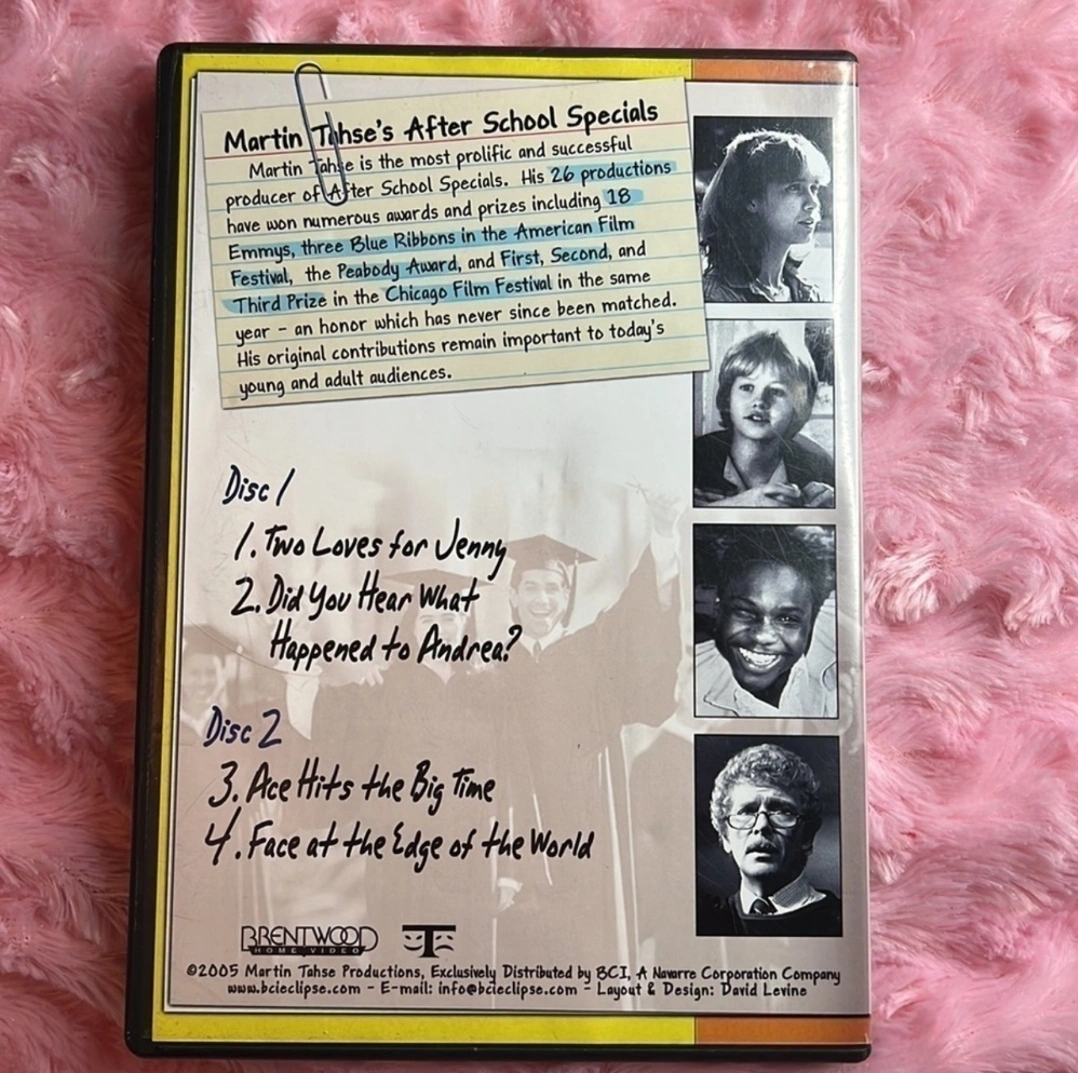 Martin Tahse's After School Specials
Martin Tahse is the most prolific and successful
producer of After School Specials. His 26 productions
have won numerous awards and prizes including 18
Emmys, three Blue Ribbons in the American Film
Festival, the Peabody Award, and First, Second, and
Third Prize in the Chicago Film Festival in the same
year - an honor which has never since been matched.
His original contributions remain important to today's
young and adult audiences.
Disc 1
1. Two Loves for Jenny
2. Did You Hear What
Happened to Andrea?
Disc 2
3. Ace Hits the Big Time
4. Face at the Edge of the World
BRENTWOOD
HOME VIDEO
©2005 Martin Tahse Productions, Exclusively Distributed by BCI, A Navarre Corporation Company
www.bcieclipse.com - E-mail: info@bcieclipse.com - Layout & Design: David Levine